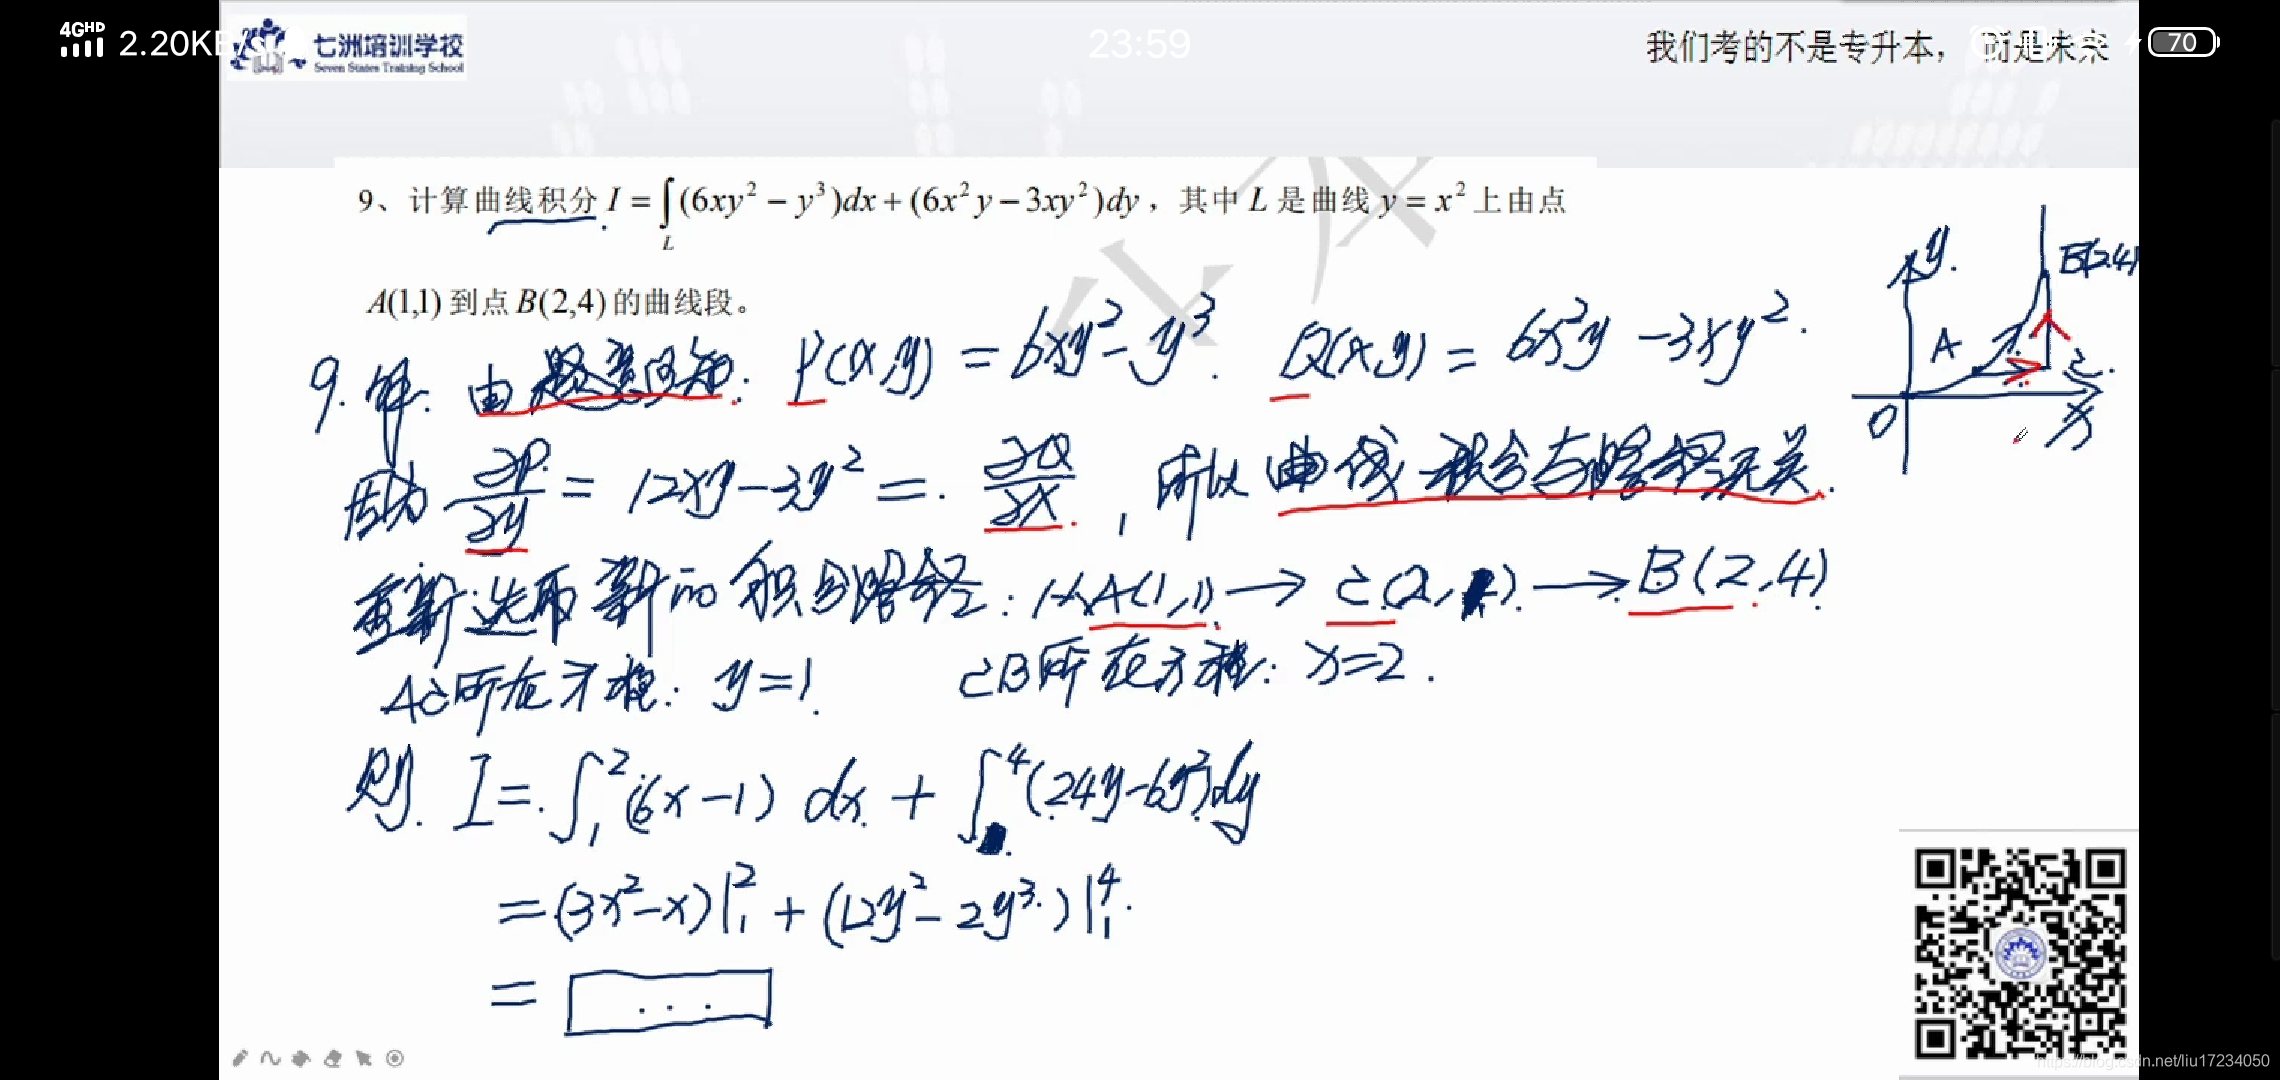 4GHD 2.20K
23:59
70
七洲培训学校
Seven States Training School
我们考的不是专升本， 而是未来
9、计算曲线积分 I = ∫_L (6xy² − y³)dx + (6x²y − 3xy²)dy，其中 L 是曲线 y = x² 上由点
A(1,1) 到点 B(2,4) 的曲线段。
y. B(2,4)
A
2.
O x
9. 解: 由题意可知: P(x,y) = 6xy² − y³. Q(x,y) = 6x²y − 3xy².
因为 ∂P/∂y = 12xy − 3y² = ∂Q/∂x, 所以曲线积分与路径无关.
重新选取新的积分路径: 从A(1,1) → C(2, ) → B(2,4)
AC所在方程: y=1. CB所在方程: x=2.
则. I = ∫₁² (6x−1) dx + ∫⁴ (24y−6y²)dy
= (3x²−x)|₁² + (12y²−2y³)|₁⁴.
= ...
https://blog.csdn.net/liu17234050